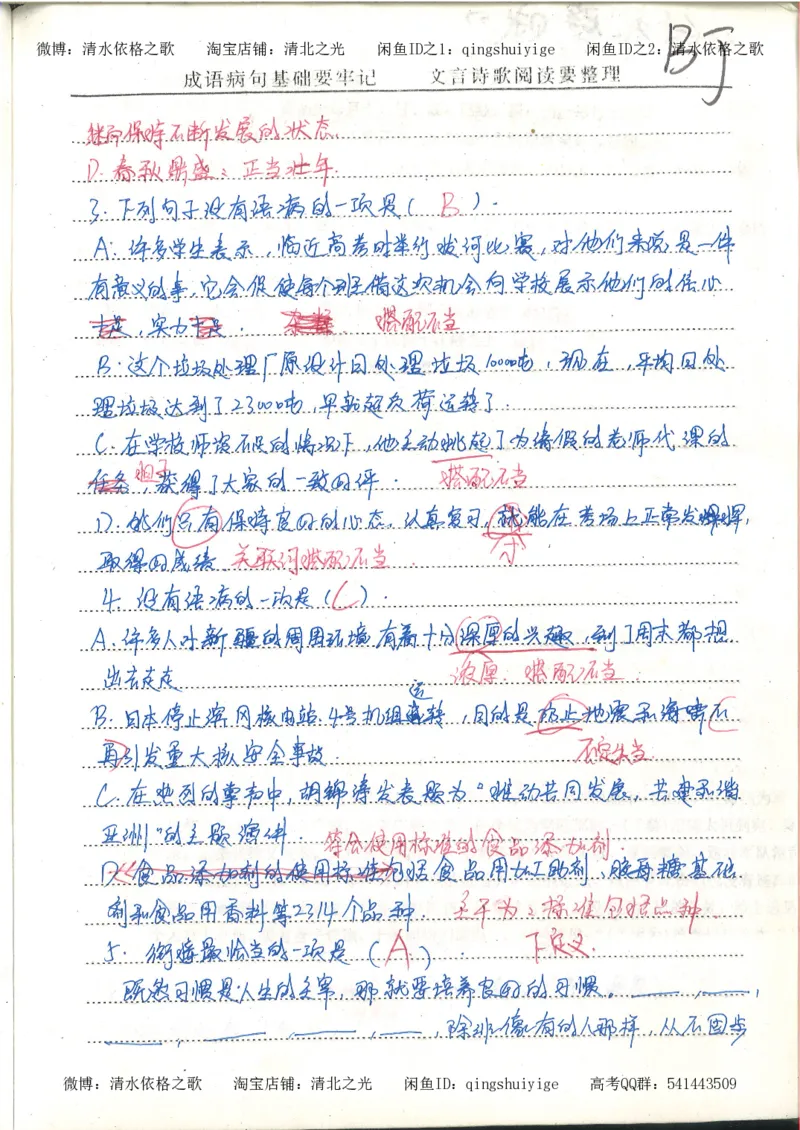 微博：清水依格之歌 淘宝店铺：清北之光 闲鱼ID之1：qingshuiyige 闲鱼ID之2：清水依格之歌
BJ
成语病句基础要牢记 文言诗歌阅读要整理
继而保持不断发展的状态.
D. 春秋鼎盛：正当壮年.
3. 下列句子没有语病的一项是（ B ）.
A. 许多学生表示，临近高考时举行拔河比赛，对他们来说是一件
有意义的事，它会促使每个班借这次机会向学校展示他们的信心
十足，实力十足. 搭配不当
B. 这个垃圾处理厂原设计日处理垃圾10000吨，现在，平均日处
理垃圾达到了23000吨，早就超负荷运转了.
C. 在学校师资不足的情况下，他主动挑起了为请假的老师代课的
任务 担子，获得了大家的一致好评. 搭配不当
D. 他们只有保持良好的心态，认真复习，就能在考场上正常发挥，
才
取得好成绩 关联词搭配不当.
4. 没有语病的一项是（C）.
A. 许多人对新疆的周围环境有着十分深厚的兴趣，到了周末都想
出去走走 浓厚：搭配不当.
B. 日本停止滨冈核电站4号机组运转，目的是防止地震和海啸不
再引发重大核安全事故. 否定失当.
C. 在热烈的掌声中，胡锦涛发表题为“推动共同发展，共建和谐
亚洲”的主题演讲. 符合使用标准的食品添加剂.
D. 食品添加剂的使用标准包括食品用加工助剂，胶母糖基础
剂和食品用香料等2314个品种. 主干为：标准包括品种
5. 衔接最恰当的一项是（A.） 下定义.
既然习惯是人生的主宰，那就要培养良好的习惯。____，____，
____，____，____，____，除非像有的人那样，从不固步
微博：清水依格之歌 淘宝店铺：清北之光 闲鱼ID：qingshuiyige 高考QQ群：541443509